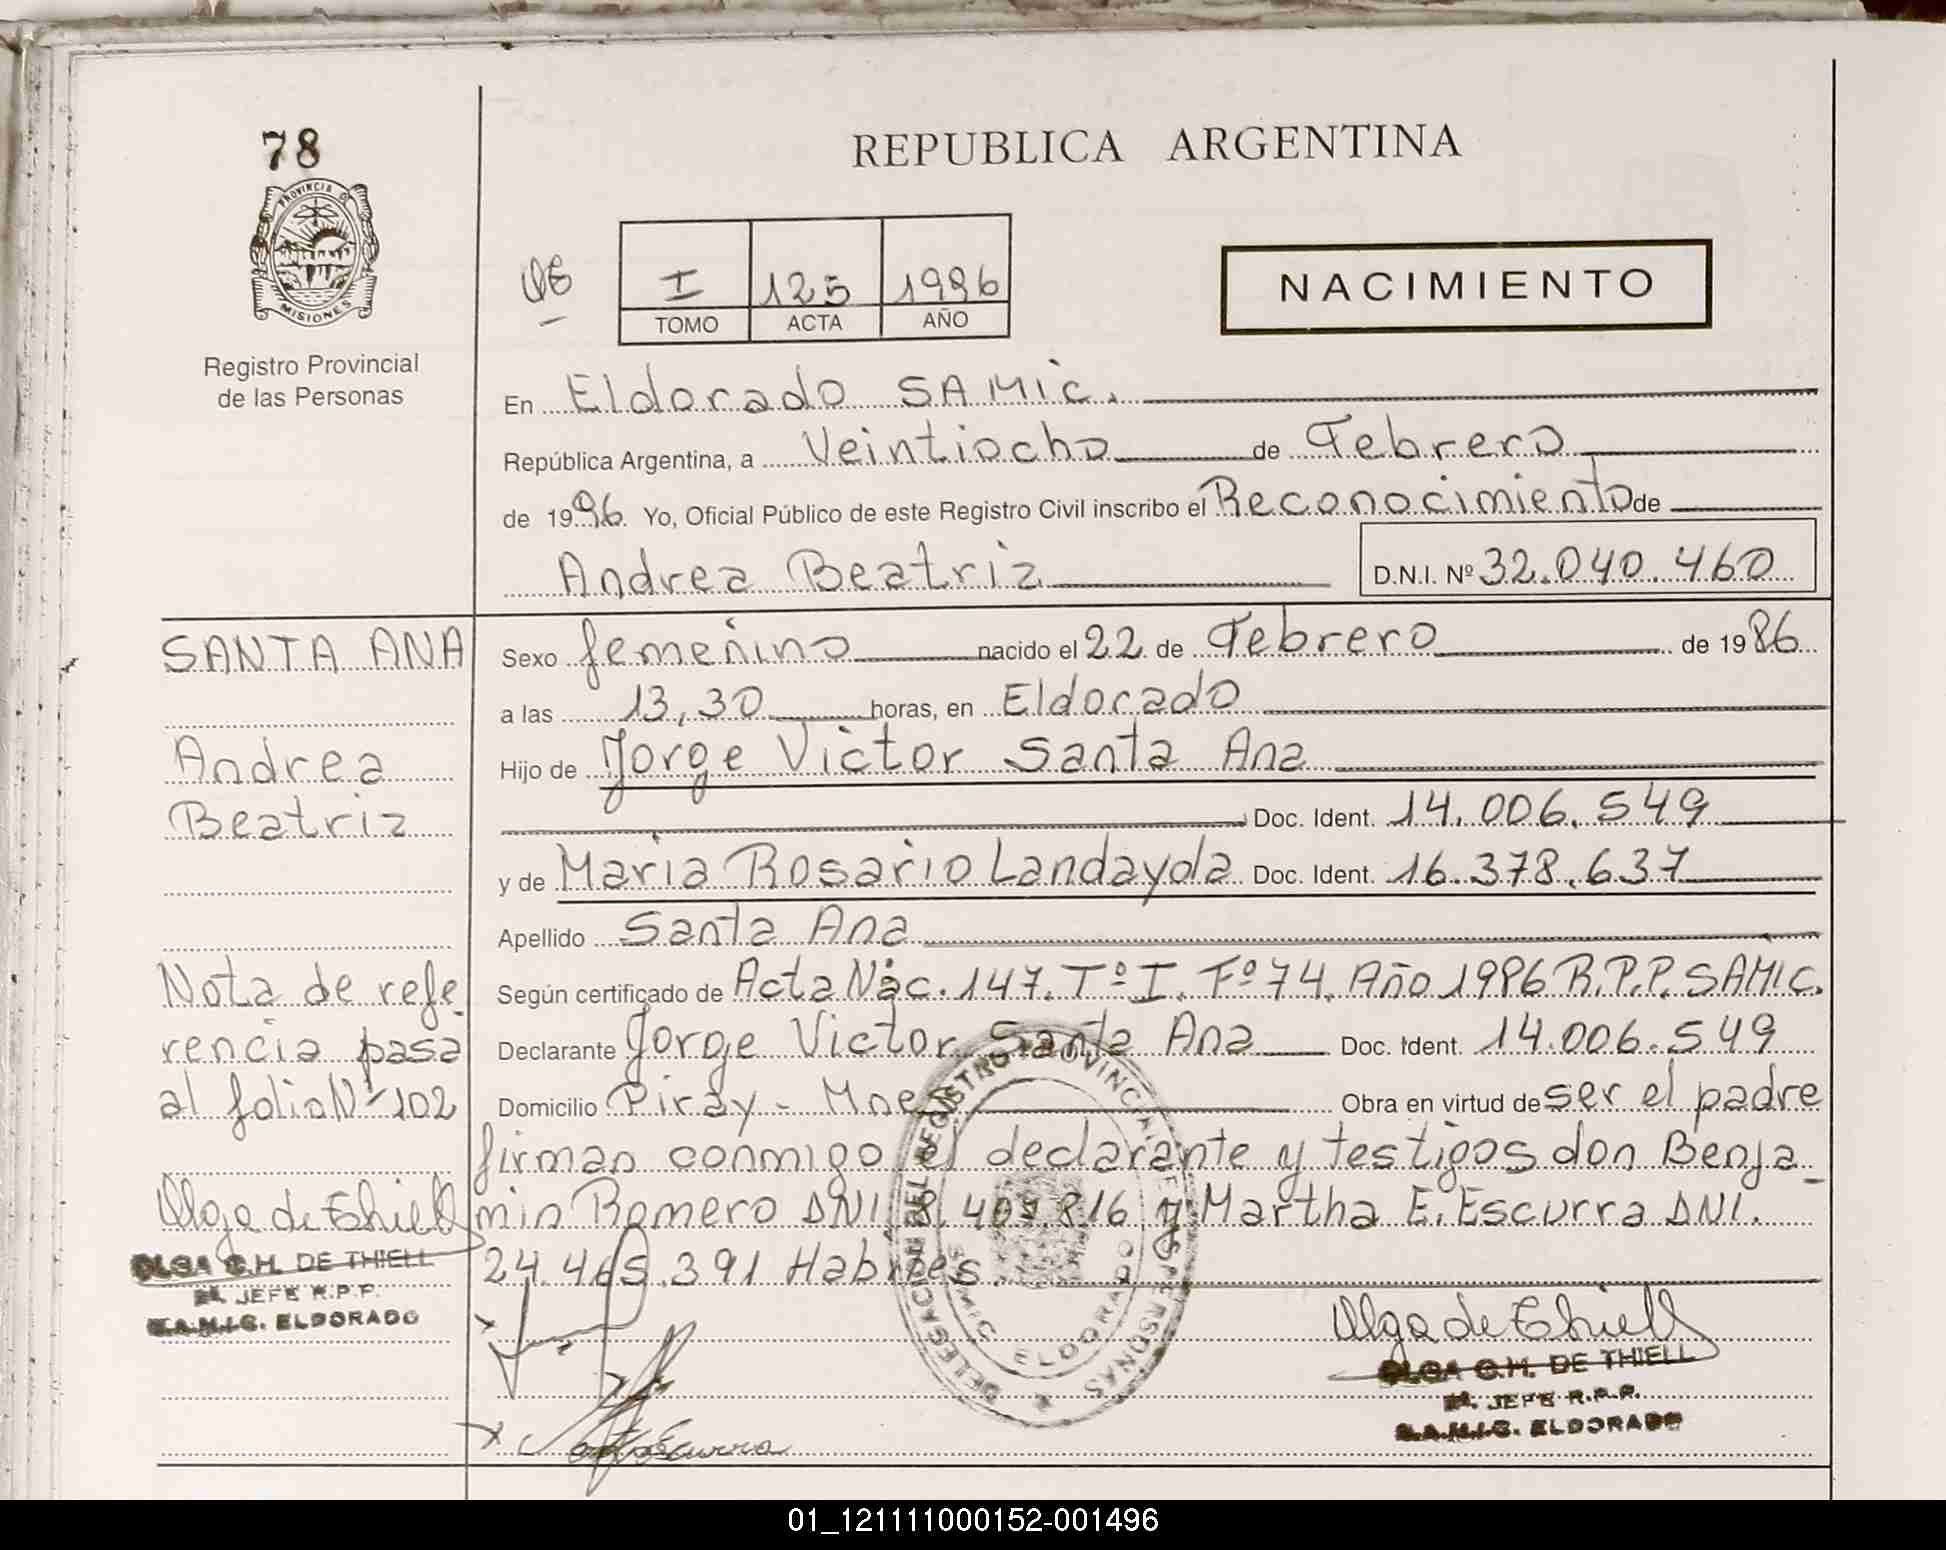 78
REPUBLICA ARGENTINA
PROVINCIA D
MISIONES
Registro Provincial
de las Personas
I 125 1996
TOMO ACTA AÑO
NACIMIENTO
En Eldorado SAMic.
República Argentina, a Veintiocho de Febrero
de 1996. Yo, Oficial Público de este Registro Civil inscribo el Reconocimiento de
Andrea Beatriz D.N.I. Nº 32.040.460
SANTA ANA
Andrea
Beatriz
Sexo femenino nacido el 22 de Febrero de 1986
a las 13,30 horas, en Eldorado
Hijo de Jorge Victor Santa Ana
Doc. Ident. 14.006.549
y de Maria Rosario Landayda Doc. Ident. 16.378.637
Apellido Santa Ana
Según certificado de Acta Nac. 147. Tº I. Fº 74. Año 1986 R.P.P. SAMIC.
Declarante Jorge Victor Santa Ana Doc. Ident. 14.006.549
Domicilio Piray - Mnes Obra en virtud de ser el padre
firman conmigo el declarante y testigos don Benja_
min Romero DNI. 8.407.816 y Martha E. Escurra DNI.
24.465.391 Habiles.
Nota de refe
rencia pasa
al folio Nº 102
Olga de Thiell
OLGA G.H. DE THIELL
JEFE R.P.P.
S.A.M.I.C. ELDORADO
DELEGACION DEL REGISTRO PROVINCIAL DE LAS PERSONAS
SAMIC ELDORADO
Olga de Thiell
OLGA G.H. DE THIELL
JEFE R.P.P.
S.A.M.I.C. ELDORADO
01_121111000152-001496